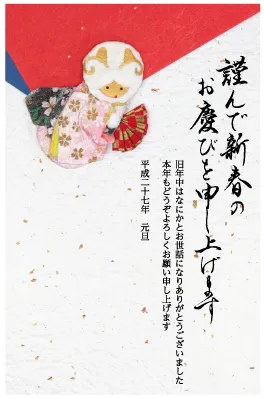 謹んで新春の
お慶びを申し上げます
旧年中はなにかとお世話になりありがとうございました
本年もどうぞよろしくお願い申し上げます
平成二十七年　元旦